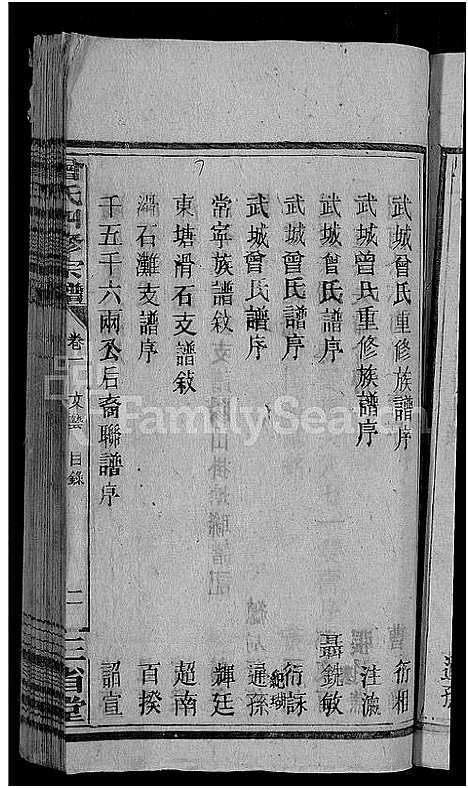 武城曾氏重修族譜序　衍相
武城曾氏重修族譜序　注瀛
武城曾氏譜序　聶銑敏
武城曾氏譜序　衍詠
武城曾氏譜序　紀瑚　遜孫
常寧族譜敘　輝廷
東塘滑石支譜敘　超南
滑石灘支譜序　百揆
千五千六兩公后裔聯譜序　詔宣
曾氏四修宗譜　卷一　文藝　目錄　二　三省堂
FamilySearch